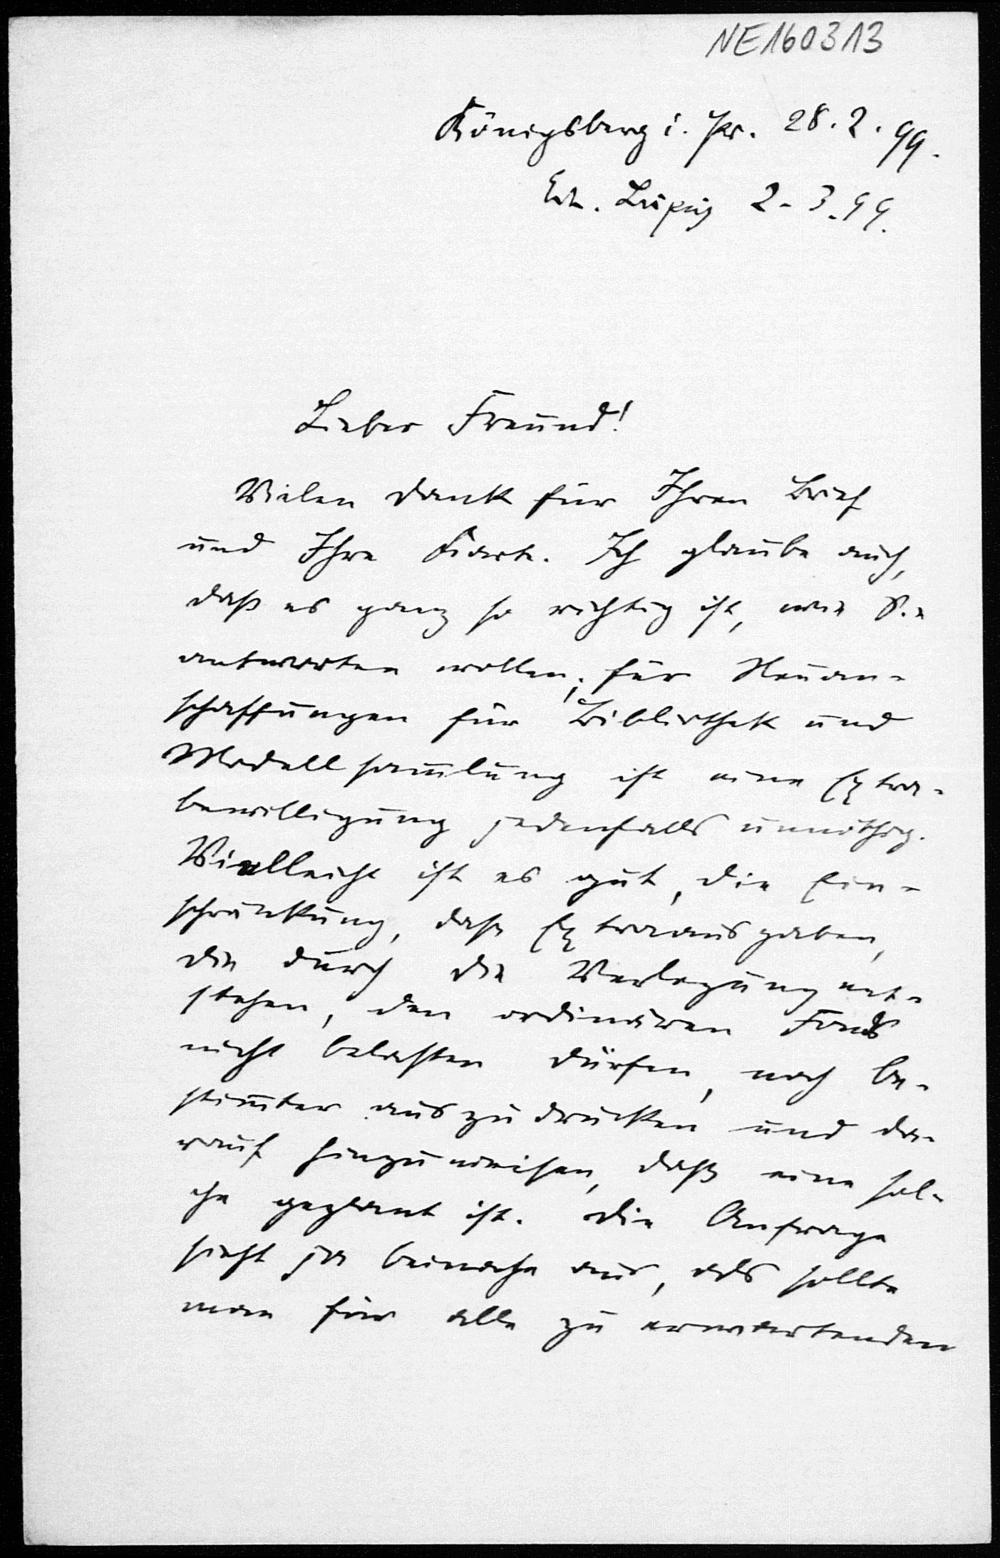 NE160313
Königsberg i. Pr. 28.2.99.
Erh. Leipzig 2.3.99.
Lieber Freund!
Vielen Dank für Ihren Brief
und Ihre Karte. Ich glaube auch,
daß es ganz so richtig ist, wie Sie
antworten wollen; für Neuan-
schaffungen für Bibliothek und
Modellsammlung ist eine Extra-
bewilligung jedenfalls unnöthig.
Vielleicht ist es gut, die Ein-
schränkung, dass Extraausgaben,
die durch die Verlegung ent-
stehen, den ordinären Fonds
nicht belasten dürfen, noch be-
stimter auszudrücken und da-
rauf hinzuweisen, daß eine sol-
che geplant ist. Die Anfrage
sieht ja beinahe aus, als sollte
man für alle zu erwartenden